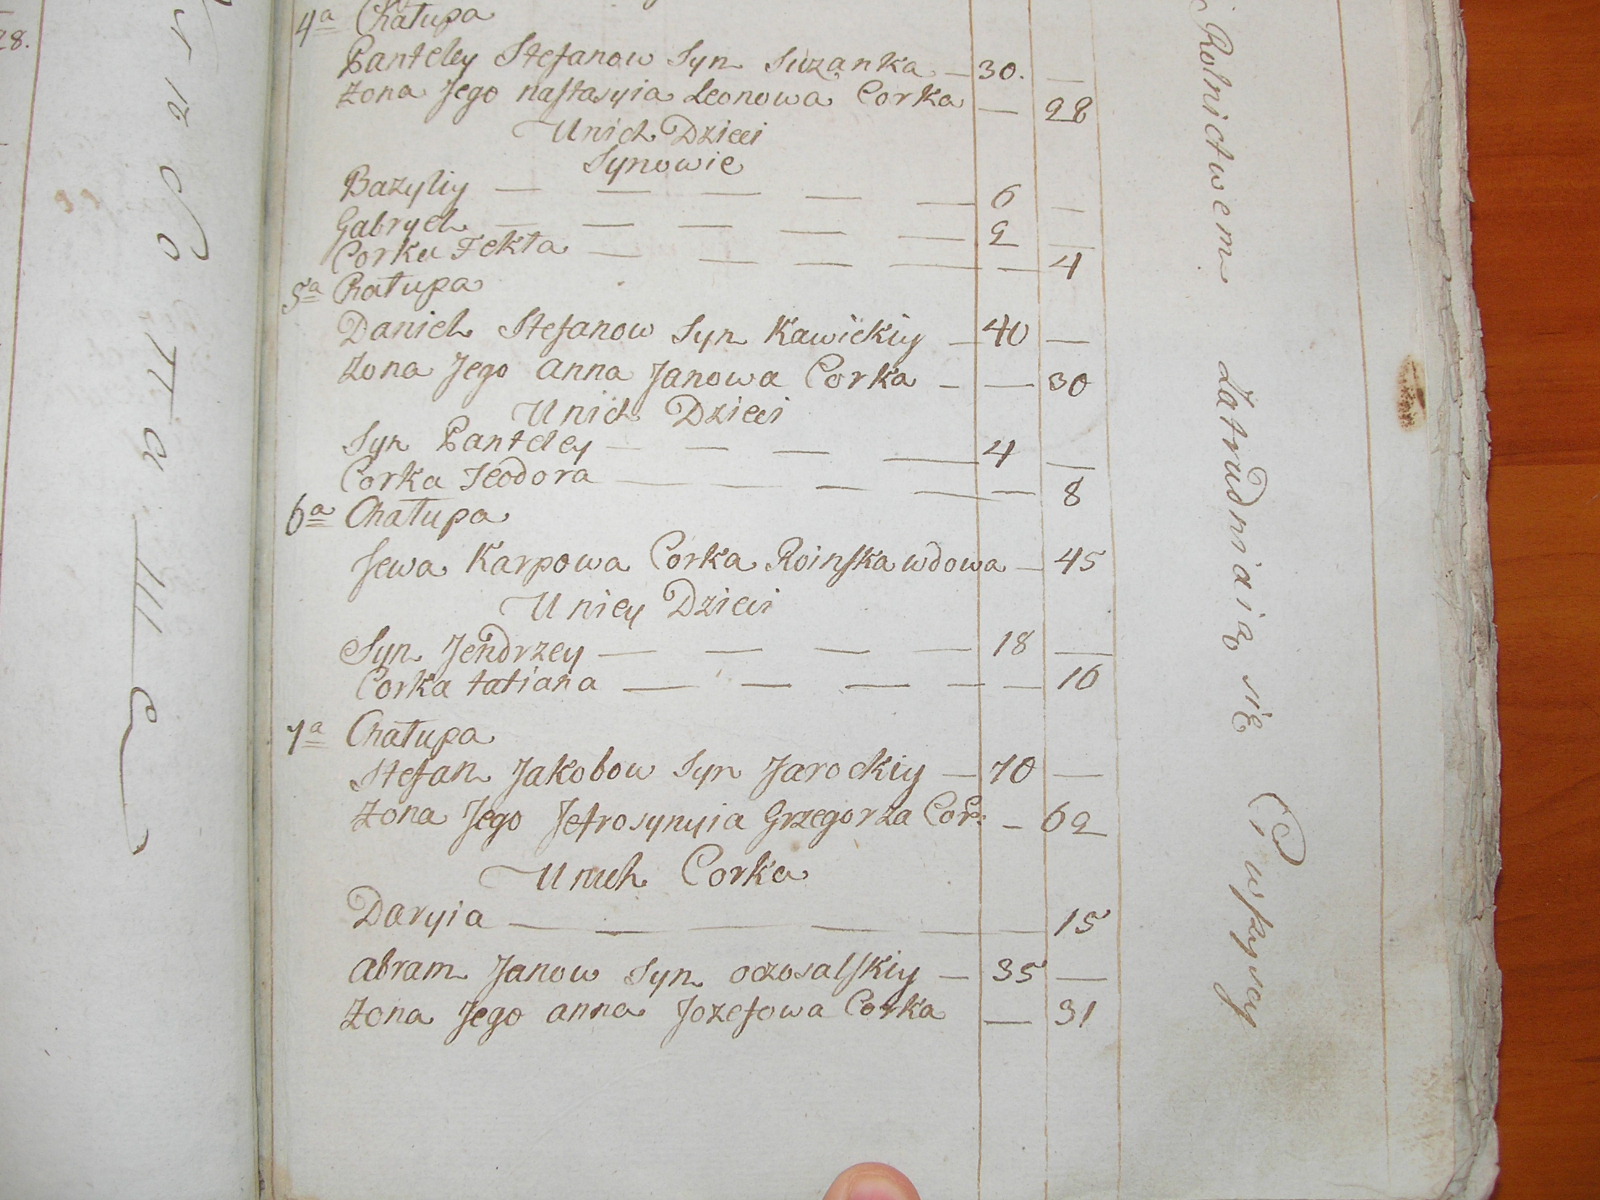 28.
4a Chałupa
Panteley Stefanow Syn Suzanka — 30. —
Zona Jego nastasyia Leonowa Corka — 28
Unich Dzieci
Synowie
Bazyliy — — — — — 6 —
Gabryel — — — — — 2 —
Corka Fekła — — — — — 4
5a Chałupa
Daniel Stefanow Syn Kawickiy — 40 —
Zona Jego anna Janowa Corka — — 30
Unich Dzieci
Syn Panteley — — — — 4 —
Corka Teodora — — — — — 8
6a Chałupa
Jewa Karpowa Corka Roinska wdowa — 45
Uniey Dzieci
Syn Jendrzey — — — — 18 —
Corka tatiana — — — — — 16
7a Chałupa
Stefan Jakobow Syn Jarockiy — 70 —
Zona Jego Jefrosynyia Grzegorza Cor: — 62
Unich Corka
Daryia — — — — — — 15
abram Janow Syn oczosalskiy — 35 —
Zona Jego anna Jozefowa Corka — 31
Rolnictwem Zatrudniaią się Ci wszyscy